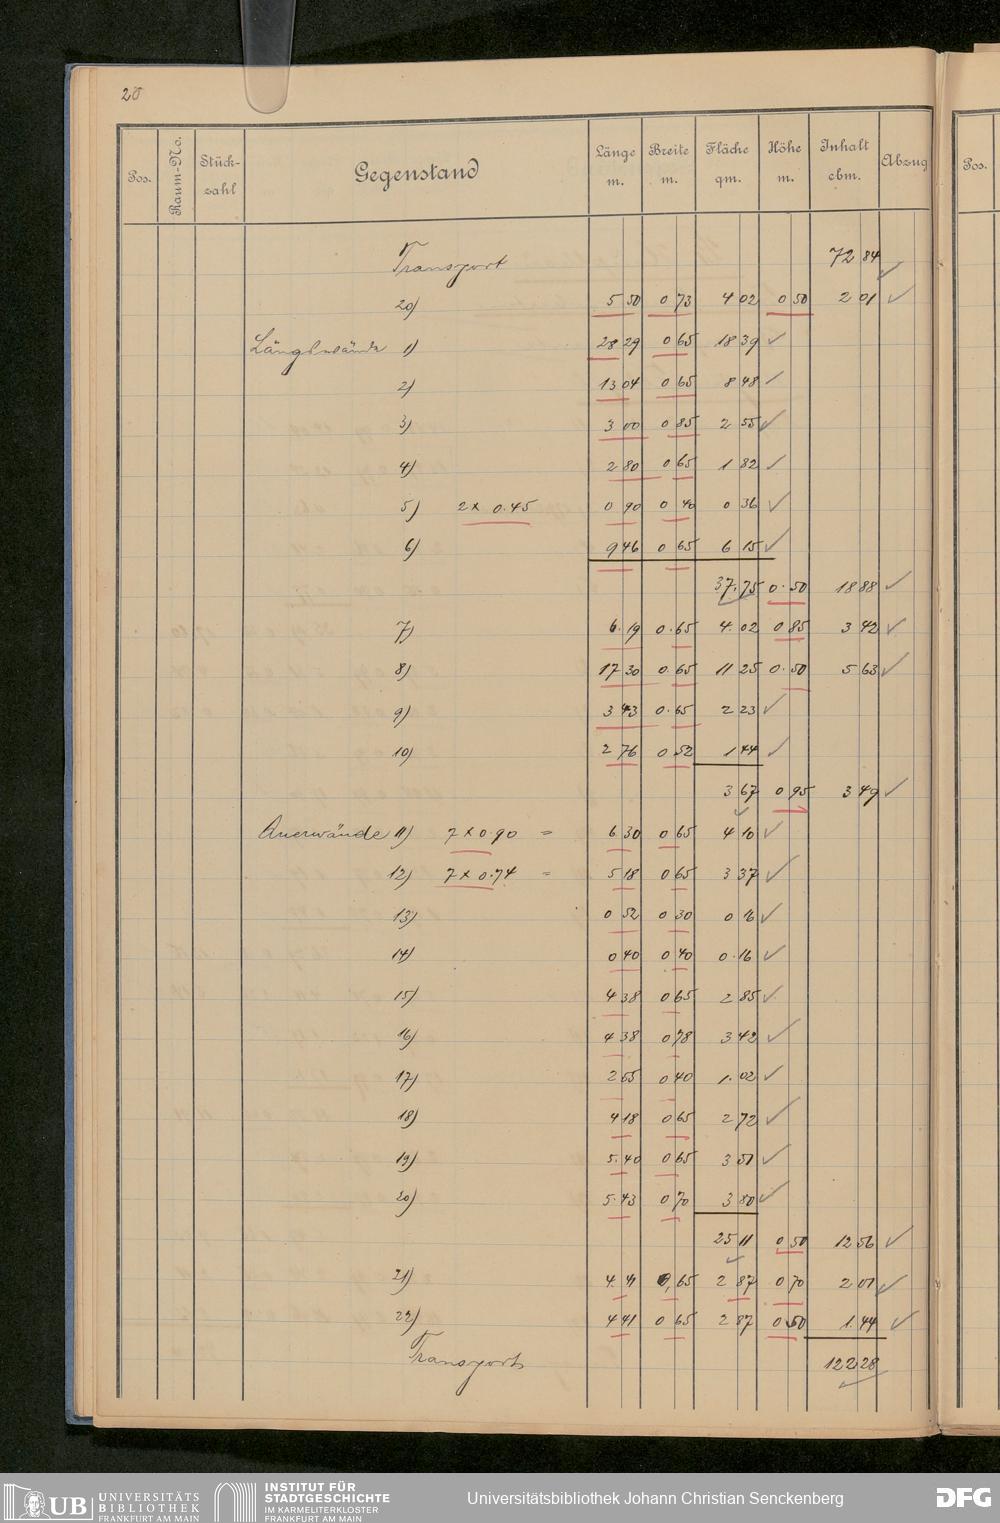 20
Pos. Raum-No. Stück-zahl Gegenstand Länge m. Breite m. Fläche qm. Höhe m. Inhalt cbm. Abzug Pos.
Transport 72 84
20) 5 50 0 73 4 02 0 50 2 01
Längswände 1) 28 29 0 65 18 39
2) 13 04 0 65 8 48
3) 3 00 0 85 2 55
4) 2 80 0 65 1 82
5) 2 x 0.45 0 90 0 40 0 36
6) 9 46 0 65 6 15
37.75 0.50 18 88
7) 6.19 0.65 4.02 0 85 3 42
8) 17 30 0.65 11 25 0.50 5 63
9) 3 43 0.65 2 23
10) 2 76 0 52 1 44
3 67 0 95 3 49
Querwände 11) 7 x 0.90 = 6 30 0 65 4 10
12) 7 x 0.74 = 5 18 0 65 3 37
13) 0 52 0 30 0 16
14) 0 40 0 40 0.16
15) 4 38 0 65 2 85
16) 4 38 0 78 3 42
17) 2 55 0 40 1.02
18) 4 18 0 65 2 72
19) 5.40 0 65 3 51
20) 5.43 0 70 3 80
25 11 0 50 12 56
21) 4.41 0,65 2 87 0 70 2 01
22) 4 41 0 65 2 87 0 50 1.44
Transport 122 28
UB UNIVERSITÄTS BIBLIOTHEK FRANKFURT AM MAIN
INSTITUT FÜR STADTGESCHICHTE IM KARMELITERKLOSTER FRANKFURT AM MAIN
Universitätsbibliothek Johann Christian Senckenberg
DFG